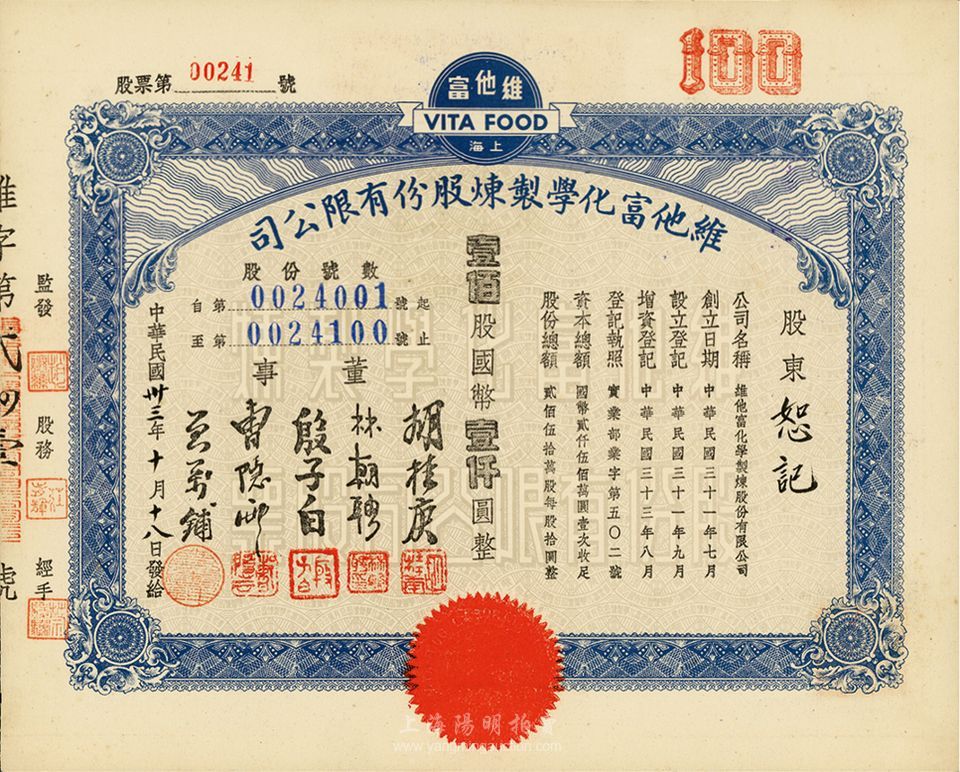 股票第 00241 號
100
維他富
VITA FOOD
上海
維他富化學製煉股份有限公司
股東 恕記
公司名稱 維他富化學製煉股份有限公司
創立日期 中華民國三十一年七月
設立登記 中華民國三十一年九月
增資登記 中華民國三十三年八月
登記執照 實業部業字第五〇二號
資本總額 國幣貳仟伍佰萬圓壹次收足
股份總額 貳佰伍拾萬股每股拾圓整
壹佰股國幣壹仟圓整
股份號數
自第 0024001 號起
至第 0024100 號止
董事
胡桂庚
林朝聘
殷子白
中華民國卅三年十月十八日發給
監發
股務
經手
上海陽明拍賣